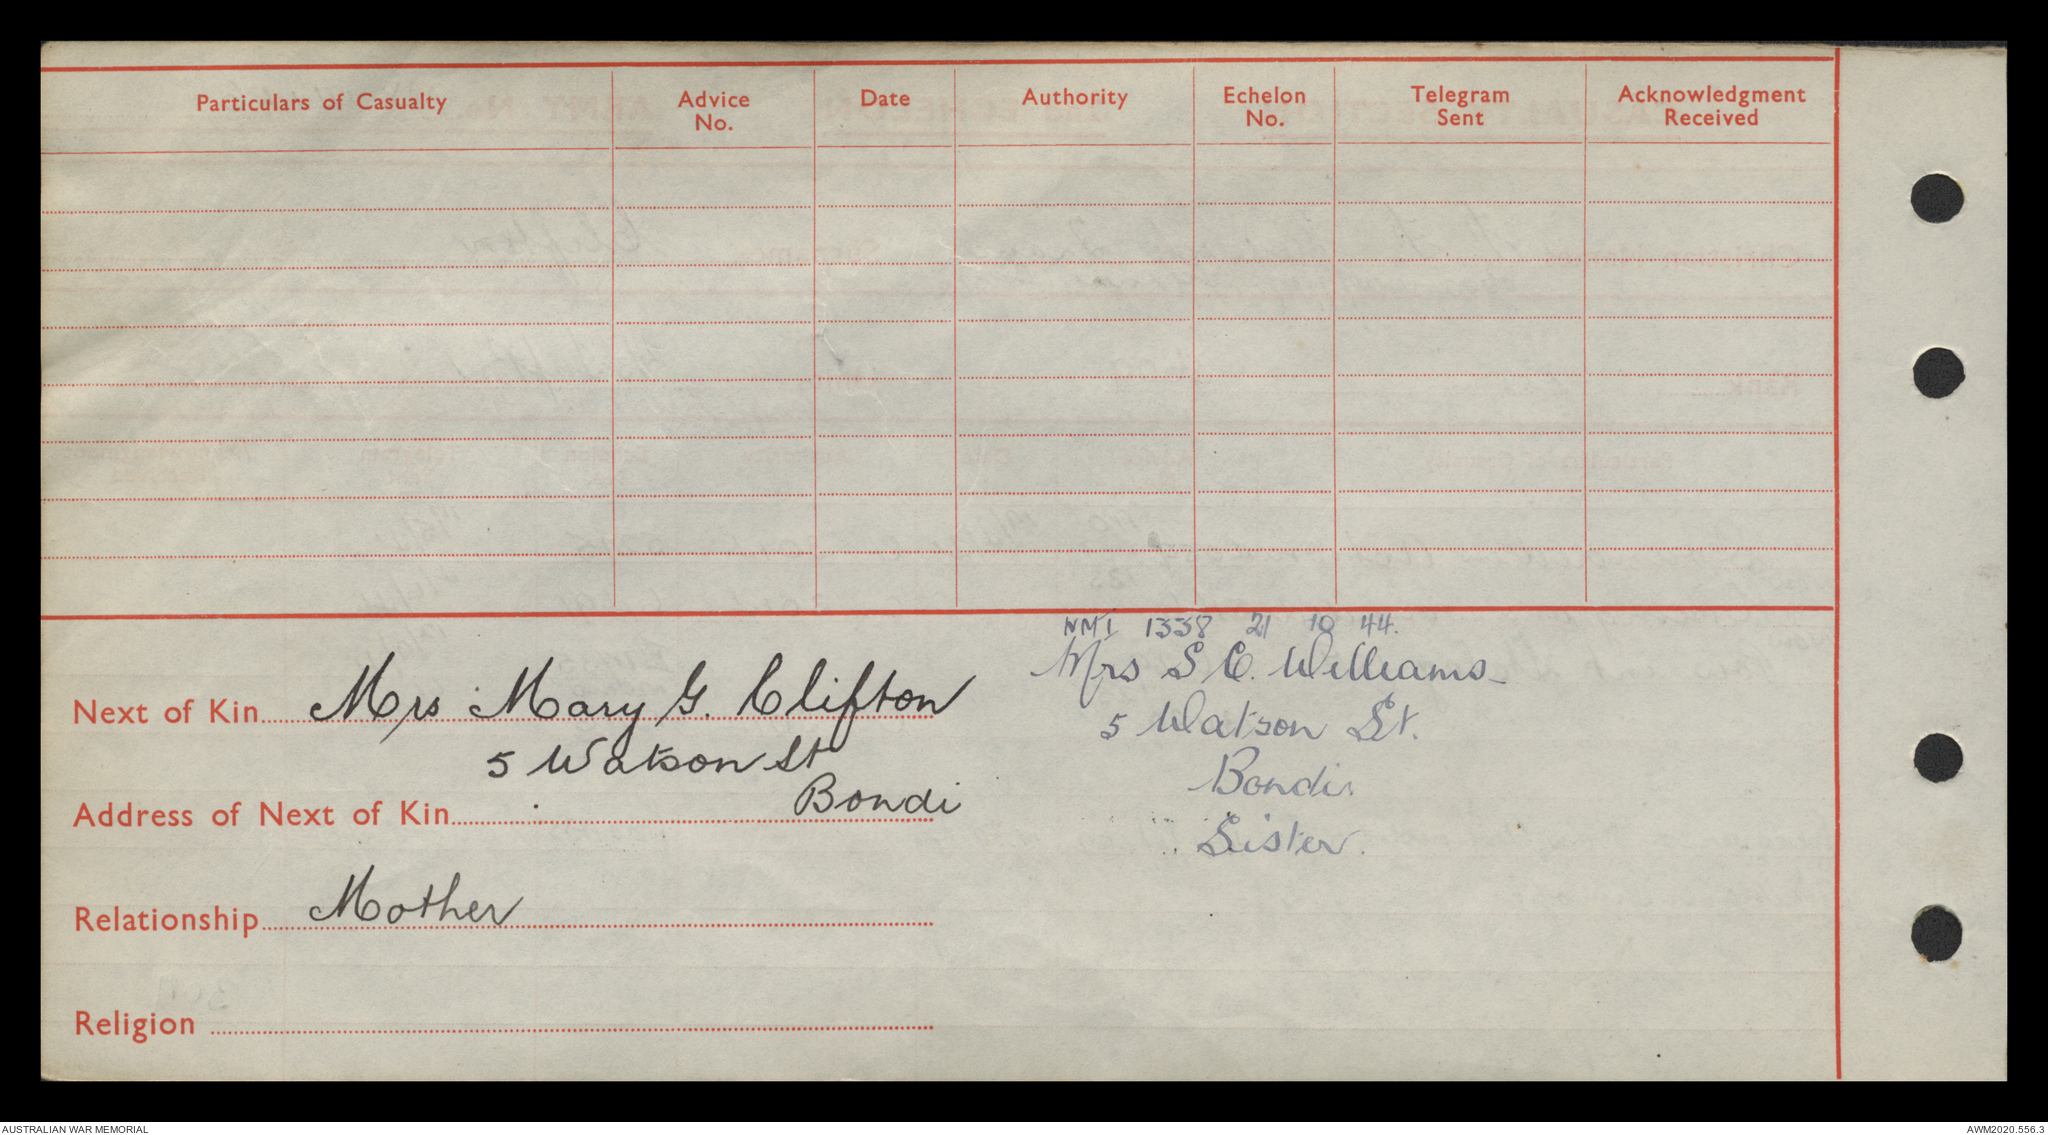 Particulars of Casualty Advice No. Date Authority Echelon No. Telegram Sent Acknowledgment Received
NM1 1338 21 10 44.
Next of Kin Mrs Mary G. Clifton
5 Watson St
Address of Next of Kin Bondi
Relationship Mother
Religion
Mrs S C. Williams
5 Watson St.
Bondi.
Sister.
AUSTRALIAN WAR MEMORIAL
AWM2020.556.3